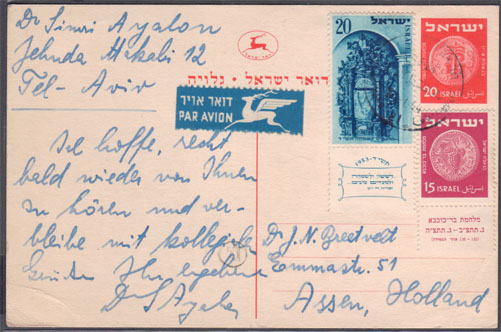 Dr Simri Ayalon
Jehuda Makabi 12
Tel-Aviv
דואר ישראל • גלויה
דואר אויר
PAR AVION
20
ישראל
ISRAEL
תשי"ד - 1953
ישראל
20 ISRAEL
ישראל
15 ISRAEL
מלחמת בר-כוכבא
Ich hoffe, recht
bald wieder von Ihnen
zu hören und ver-
bleibe mit kollegialen
Grüßen Ihr ergebener
Dr S Ayalon
Dr. J. N. Greetveld
Emmastr. 51
Assen, Holland